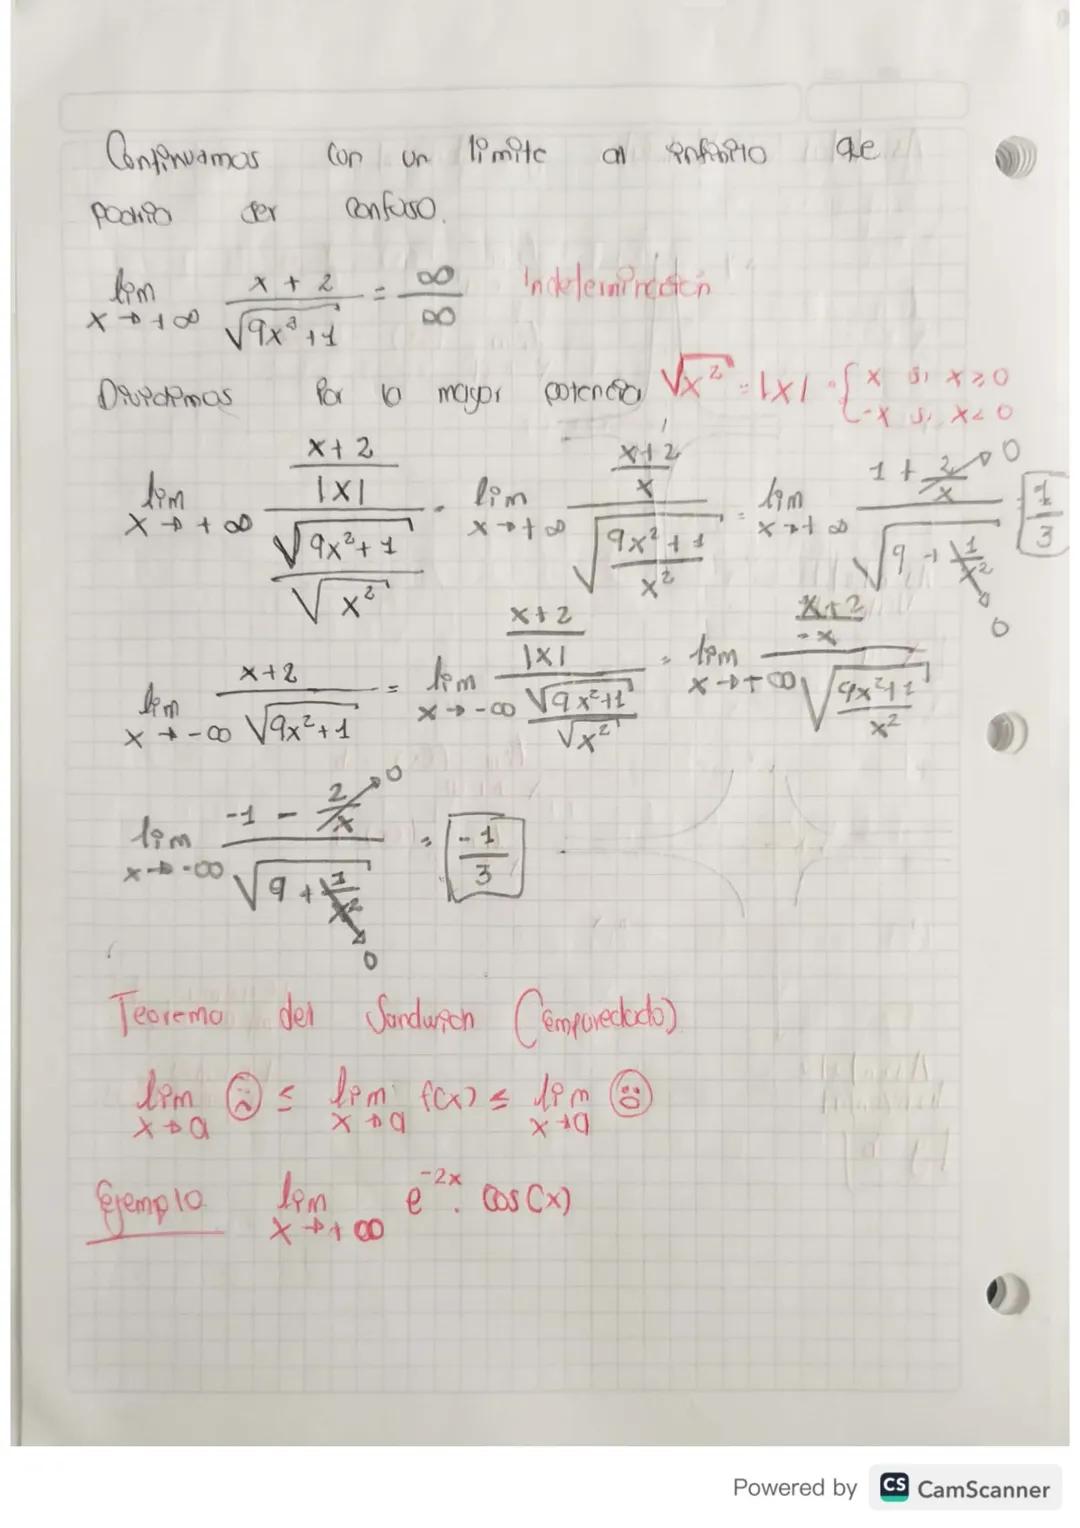 Continuamos con un limite al infinito que
podria ser confuso.
lim x→+∞ (x + 2)/√(9x³ + 1) = ∞/∞ Indeterminación
Dividimos Por la mayor potencia √x² = |x| = { x si x ≥ 0
-x si x < 0
lim x→+∞ ((x + 2)/|x|)/(√(9x² + 1)/√x²) = lim x→+∞ ((x + 2)/x)/√((9x² + 1)/x²) = lim x→+∞ (1 + 2/x→0)/√(9 + 1/x²→0) = 1/3
lim x→-∞ (x + 2)/√(9x² + 1) = lim x→-∞ ((x + 2)/|x|)/(√(9x² + 1)/√x²) = lim x→-∞ ((x + 2)/-x)/√((9x² + 1)/x²)
lim x→-∞ (-1 - 2/x→0)/√(9 + 1/x²→0) = -1/3
Teorema del Sandwich (emparedado)
lim x→a ☹ ≤ lim x→a f(x) ≤ lim x→a ☹
Ejemplo lim x→+∞ e^-2x . cos(x)
Powered by CS CamScanner